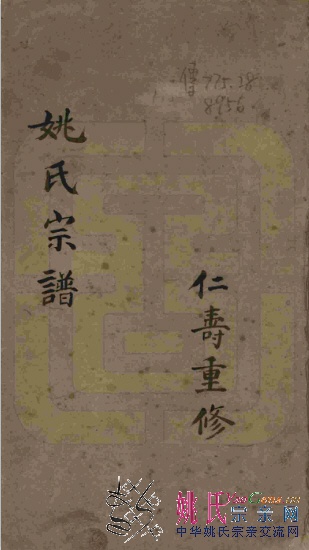 姚氏宗譜
仁壽重修
775.38
8956
姚氏宗亲网
中华姚氏宗亲交流网